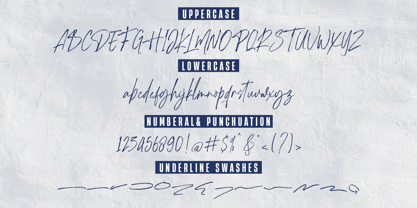 UPPERCASE
ABCDEFGHIJKLMNOPQRSTUVWXYZ
LOWERCASE
abcdefghijklmnopqrstuvwxyz
NUMBERAL& PUNCHUATION
1234567890!@#$%^&*<(?)>
UNDERLINE SWASHES